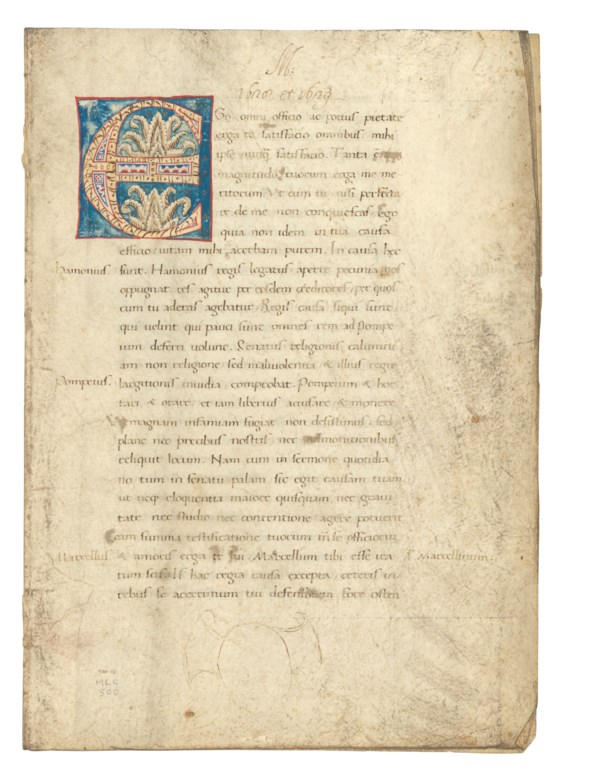 EGo omni officio ac potius pietate
erga te satisfacio omnibus mihi
ipse nunq satisfacio. Tanta enim
magnitudo tuorum erga me me
ritorum. Vt cum tu nisi perfecta
re de me non conquiescas. Ego
quia non idem in tua causa
efficio uitam mihi acerbam putem. In causa hec
Hamonius sunt. Hamonius regis legatus aperte pecunia nos
oppugnat res agitur per eosdem creditores, per quos
cum tu aderas agebatur. Regis causa siqui sunt
qui uelint qui pauci sunt omnes rem ad Pompe
ium deferri uolunt. Senatus religionis calumni
am non religione sed maliuolentia & illius regie
Pompeius. largitionis inuidia comprobat. Pompeium & hor
tari & orare. et iam liberius accusare & monere
Vt magnam infamiam fugiat non desistimus. Sed
plane nec precibus nostris nec admonitionibus
reliquit locum. Nam cum in sermone quotidia
no tum in senatu palam sic egit causam tuam
ut neq eloquentia maiore quisquam nec graui
tate nec studio nec contentione agere potuerit
Cum summa testificatione tuorum in se officiorum
Marcellus & amoris erga te sui Marcellum tibi esse ira
tum scis. Is hac regia causa excepta. ceteris in
rebus se acerrimum tui defensorem fore osten
Marcellinum.
MLC
500